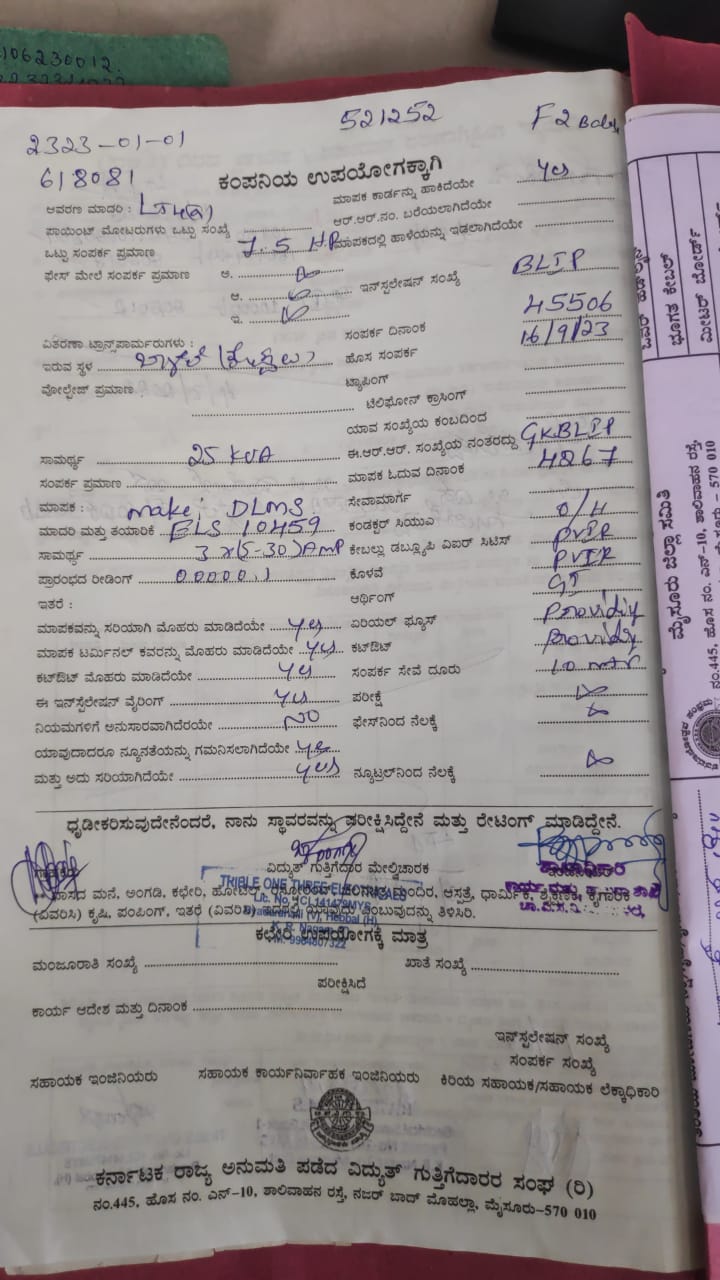 106230012.
521252
F2
2323-01-01
618081
ಕಂಪನಿಯ ಉಪಯೋಗಕ್ಕಾಗಿ
ಆವರಣ ಮಾದರಿ : LT4(a)
ಮಾಪಕ ಕಾರ್ಡನ್ನು ಹಾಕಿದೆಯೇ Yes
ಪಾಯಿಂಟ್ ಮೋಟರುಗಳು ಒಟ್ಟು ಸಂಖ್ಯೆ
ಆರ್.ಆರ್.ನಂ. ಬರೆಯಲಾಗಿದೆಯೇ
ಒಟ್ಟು ಸಂಪರ್ಕ ಪ್ರಮಾಣ 7.5 HP
ಮಾಪಕದಲ್ಲಿ ಹಾಳೆಯನ್ನು ಇಡಲಾಗಿದೆಯೇ
ಫೇಸ್ ಮೇಲೆ ಸಂಪರ್ಕ ಪ್ರಮಾಣ ಅ.
ಆ.
ಇ.
ಇನ್‌ಸ್ಟಲೇಷನ್ ಸಂಖ್ಯೆ BLIP
45506
ವಿತರಣಾ ಟ್ರಾನ್ಸ್‌ಪಾರ್ಮರುಗಳು :
ಸಂಪರ್ಕ ದಿನಾಂಕ 16/9/23
ಇರುವ ಸ್ಥಳ
ಹೊಸ ಸಂಪರ್ಕ
ವೋಲ್ಟೇಜ್ ಪ್ರಮಾಣ
ಟ್ಯಾಪಿಂಗ್
ಟೆಲಿಫೋನ್ ಕ್ರಾಸಿಂಗ್
ಯಾವ ಸಂಖ್ಯೆಯ ಕಂಬದಿಂದ
ಸಾಮರ್ಥ್ಯ 25 KVA
ಈ.ಆರ್.ಆರ್. ಸಂಖ್ಯೆಯ ನಂತರದ್ದು GKBLIP
ಸಂಪರ್ಕ ಪ್ರಮಾಣ
ಮಾಪಕ ಓದುವ ದಿನಾಂಕ 4867
ಮಾಪಕ : make: DLMS
ಸೇವಾಮಾರ್ಗ
ಮಾದರಿ ಮತ್ತು ತಯಾರಿಕೆ ELS 10459
ಕಂಡಕ್ಟರ್ ಸಿಯುವಿ O/H
ಸಾಮರ್ಥ್ಯ 3x(5-30)Amp
ಕೇಬಲ್ಲು ಡಬ್ಲ್ಯೂಪಿ ವಿಐರ್ ಸಿಟಿಸ್ PVIR
ಪ್ರಾರಂಭದ ರೀಡಿಂಗ್ 00000.1
ಕೊಳವೆ PVIR
ಇತರೆ :
ಆರ್ಥಿಂಗ್ GI
ಮಾಪಕವನ್ನು ಸರಿಯಾಗಿ ಮೊಹರು ಮಾಡಿದೆಯೇ Yes
ಏರಿಯಲ್ ಫ್ಯೂಸ್
ಮಾಪಕ ಟರ್ಮಿನಲ್ ಕವರನ್ನು ಮೊಹರು ಮಾಡಿದೆಯೇ Yes
ಕಟ್‌ಔಟ್
ಕಟ್‌ಔಟ್ ಮೊಹರು ಮಾಡಿದೆಯೇ Yes
ಸಂಪರ್ಕ ಸೇವೆ ದೂರು 10 mtr
ಈ ಇನ್‌ಸ್ಟಲೇಷನ್ ವೈರಿಂಗ್ Yes
ಪರೀಕ್ಷೆ
ನಿಯಮಗಳಿಗೆ ಅನುಸಾರವಾಗಿದೆರಯೇ NO
ಫೇಸ್‌ನಿಂದ ನೆಲಕ್ಕೆ
ಯಾವುದಾದರೂ ನ್ಯೂನತೆಯನ್ನು ಗಮನಿಸಲಾಗಿದೆಯೇ Yes
ಮತ್ತು ಅದು ಸರಿಯಾಗಿದೆಯೇ Yes
ನ್ಯೂಟ್ರಲ್‌ನಿಂದ ನೆಲಕ್ಕೆ
ಧೃಡೀಕರಿಸುವುದೇನೆಂದರೆ, ನಾನು ಸ್ಥಾವರವನ್ನು ಪರೀಕ್ಷಿಸಿದ್ದೇನೆ ಮತ್ತು ರೇಟಿಂಗ್ ಮಾಡಿದ್ದೇನೆ.
ವಿದ್ಯುತ್ ಗುತ್ತಿಗೆದಾರ ಮೇಲ್ವಿಚಾರಕ
TRIBLE ONE THREE ELECTRICALS
Lic. No.
Hebbal (H)
K.R. Nagar
M: 9964807322
ವಾಸದ ಮನೆ, ಅಂಗಡಿ, ಕಛೇರಿ, ಹೋಟೆಲ್, ಮಂದಿರ, ಆಸ್ಪತ್ರೆ, ಧಾರ್ಮಿಕ, ಶೈಕ್ಷಣಿಕ, ಕೈಗಾರಿಕೆ
(ವಿವರಿಸಿ) ಕೃಷಿ, ಪಂಪಿಂಗ್, ಇತರೆ (ವಿವರಿಸಿ) ಇದರಲ್ಲಿ ಯಾವುದು ಎಂಬುವುದನ್ನು ತಿಳಿಸಿರಿ.
ಕಛೇರಿ ಉಪಯೋಗಕ್ಕೆ ಮಾತ್ರ
ಮಂಜೂರಾತಿ ಸಂಖ್ಯೆ
ಖಾತೆ ಸಂಖ್ಯೆ
ಪರೀಕ್ಷಿಸಿದೆ
ಕಾರ್ಯ ಆದೇಶ ಮತ್ತು ದಿನಾಂಕ
ಇನ್‌ಸ್ಪಲೇಷನ್ ಸಂಖ್ಯೆ
ಸಂಪರ್ಕ ಸಂಖ್ಯೆ
ಸಹಾಯಕ ಇಂಜಿನಿಯರು
ಸಹಾಯಕ ಕಾರ್ಯನಿರ್ವಾಹಕ ಇಂಜಿನಿಯರು
ಕಿರಿಯ ಸಹಾಯಕ/ಸಹಾಯಕ ಲೆಕ್ಕಾಧಿಕಾರಿ
ಕರ್ನಾಟಕ ರಾಜ್ಯ ಅನುಮತಿ ಪಡೆದ ವಿದ್ಯುತ್ ಗುತ್ತಿಗೆದಾರರ ಸಂಘ (ರಿ)
ನಂ.445, ಹೊಸ ನಂ. ಎನ್-10, ಶಾಲಿವಾಹನ ರಸ್ತೆ, ನಜರ್ ಬಾದ್ ಮೊಹಲ್ಲಾ, ಮೈಸೂರು-570 010
ಭೂಗತ ಕೇಬಲ್
ಮೀಟರ್ ಬೋರ್ಡ್
ಮೈಸೂರು ಜಿಲ್ಲಾ ಸಮಿತಿ
ನಂ.445, ಹೊಸ ನಂ. ಎನ್-10, ಶಾಲಿವಾಹನ ರಸ್ತೆ,
- 570 010